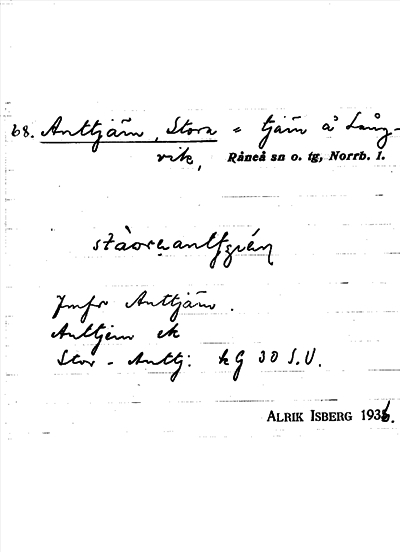 68. Anttjärn, Stora = tjärn å Lång-
vik, Råneå sn o. tg, Norrb. l.
Jmfr Anttjärn.
Anttjern ek
Stor-Anttj: kg 30 S.V.
ALRIK ISBERG 1936.